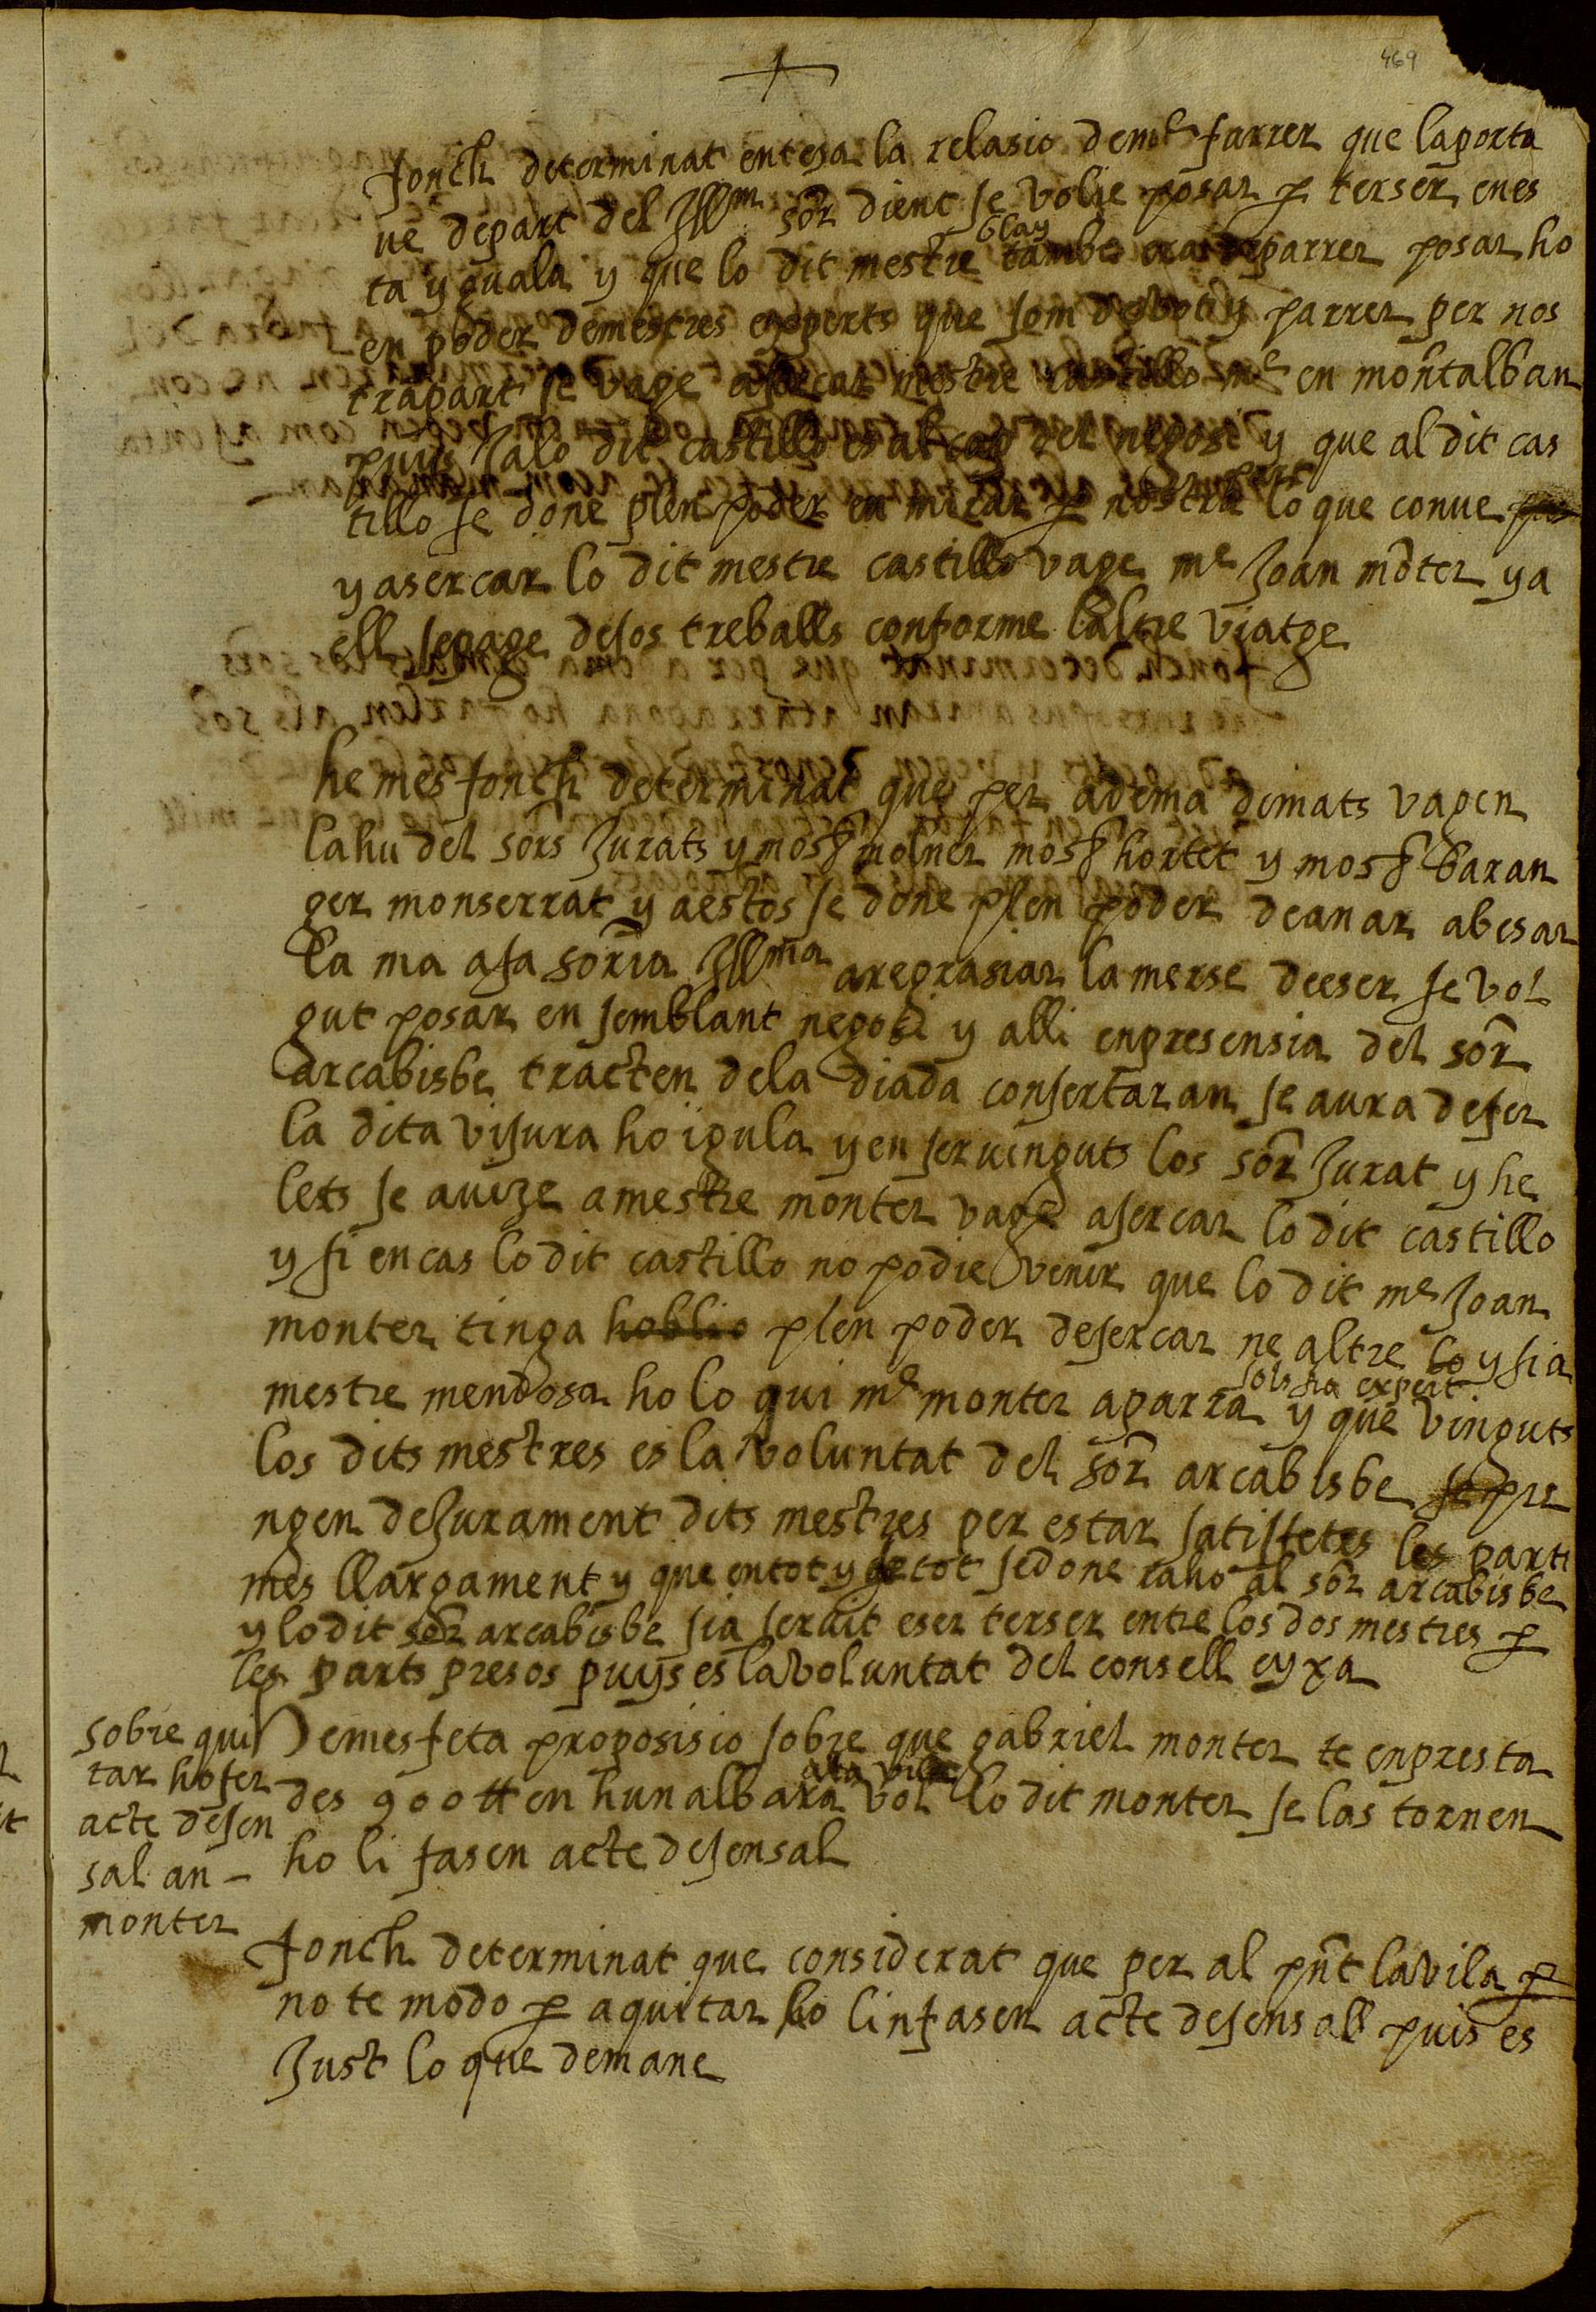 469
fonch determinat entesa la relasio de mᵉ farrer que laporta
ve depart del Illm sor dient se volie posar p terser en es
ta yguala y que lo dit mestre blay tambe era de parrer posar ho
en poder de mestres experts que som de vot y parrer per nos
tra part se vage a sercar mestre castillo mᵉ en montalban
puys ja lo dit castillo es al cap del negosi y que al dit cas
tillo se done plen poder en mirar p nostra part lo que conve
y a sercar lo dit mestre castillo vage mᵉ Joan mōter y a
ell se page de sos treballs conforme laltre viatge
he mes fonch determinat que per a dema dimats vagen
la hu del sors Jurats y mosᵉ molner mosᵉ hortet y mosᵉ baran
ger monserrat y a estos se done plen poder de anar a besar
la ma a sa soria Illma a regrasiar la merse de eser se vol
gut posar en semblant negosi y alli en presensia del sor
arcabisbe tracten de la diada consertaran se aura de fer
la dita visura ho igula y en ser vinguts los sor Jurat y he
lets se avize a mestre monter vage a sercar lo dit castillo
y si en cas lo dit castillo no podie venir que lo dit mᵉ Joan
monter tinga hoblio plen poder de sercar ne altre lo y sia
mestre mendosa ho lo qui mᵉ monter aparra sols sia expert y que vinguts
los dits mestres es la voluntat del sor arcabisbe se pre
ngen de Jurament dits mestres per estar satisfetes les parts
mes llargament y que en tot y de tot se done raho al sor arcabisbe
y lo dit sor arcabisbe sia servit eser terser entre los dos mestres p
les parts presos puys es la voluntat del consell eyxa
sobre qui
tar ho fer
acte de sen
sal an -
monter
Hemes feta proposisio sobre que gabriel monter te enpresta
des 900 ℔ en hun albara a la vila vol lo dit monter se las tornen
ho li fasen acte de sensal
fonch determinat que considerat que per al pnt la vila p
no te modo p a quitar lo linfasen acte de sensall puis es
Just lo que demane